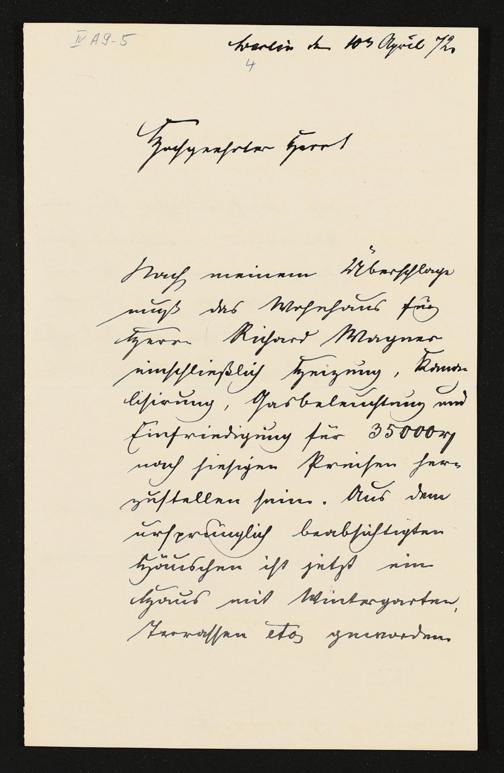 IV A9-5
Berlin den 10 April 72.
4
Hochgeehrter Herr!
Nach meinem Überschlage
muß das Wohnhaus für
Herrn Richard Wagner
einschließlich Heizung, Kana-
lisirung, Gasbeleuchtung und
Einfriedigung für 35000 rℓ
nach hiesigen Preisen her-
zustellen sein. Aus dem
ursprünglich beabsichtigten
Häuschen ist jetzt ein
Haus mit Wintergarten,
Terrassen etc geworden